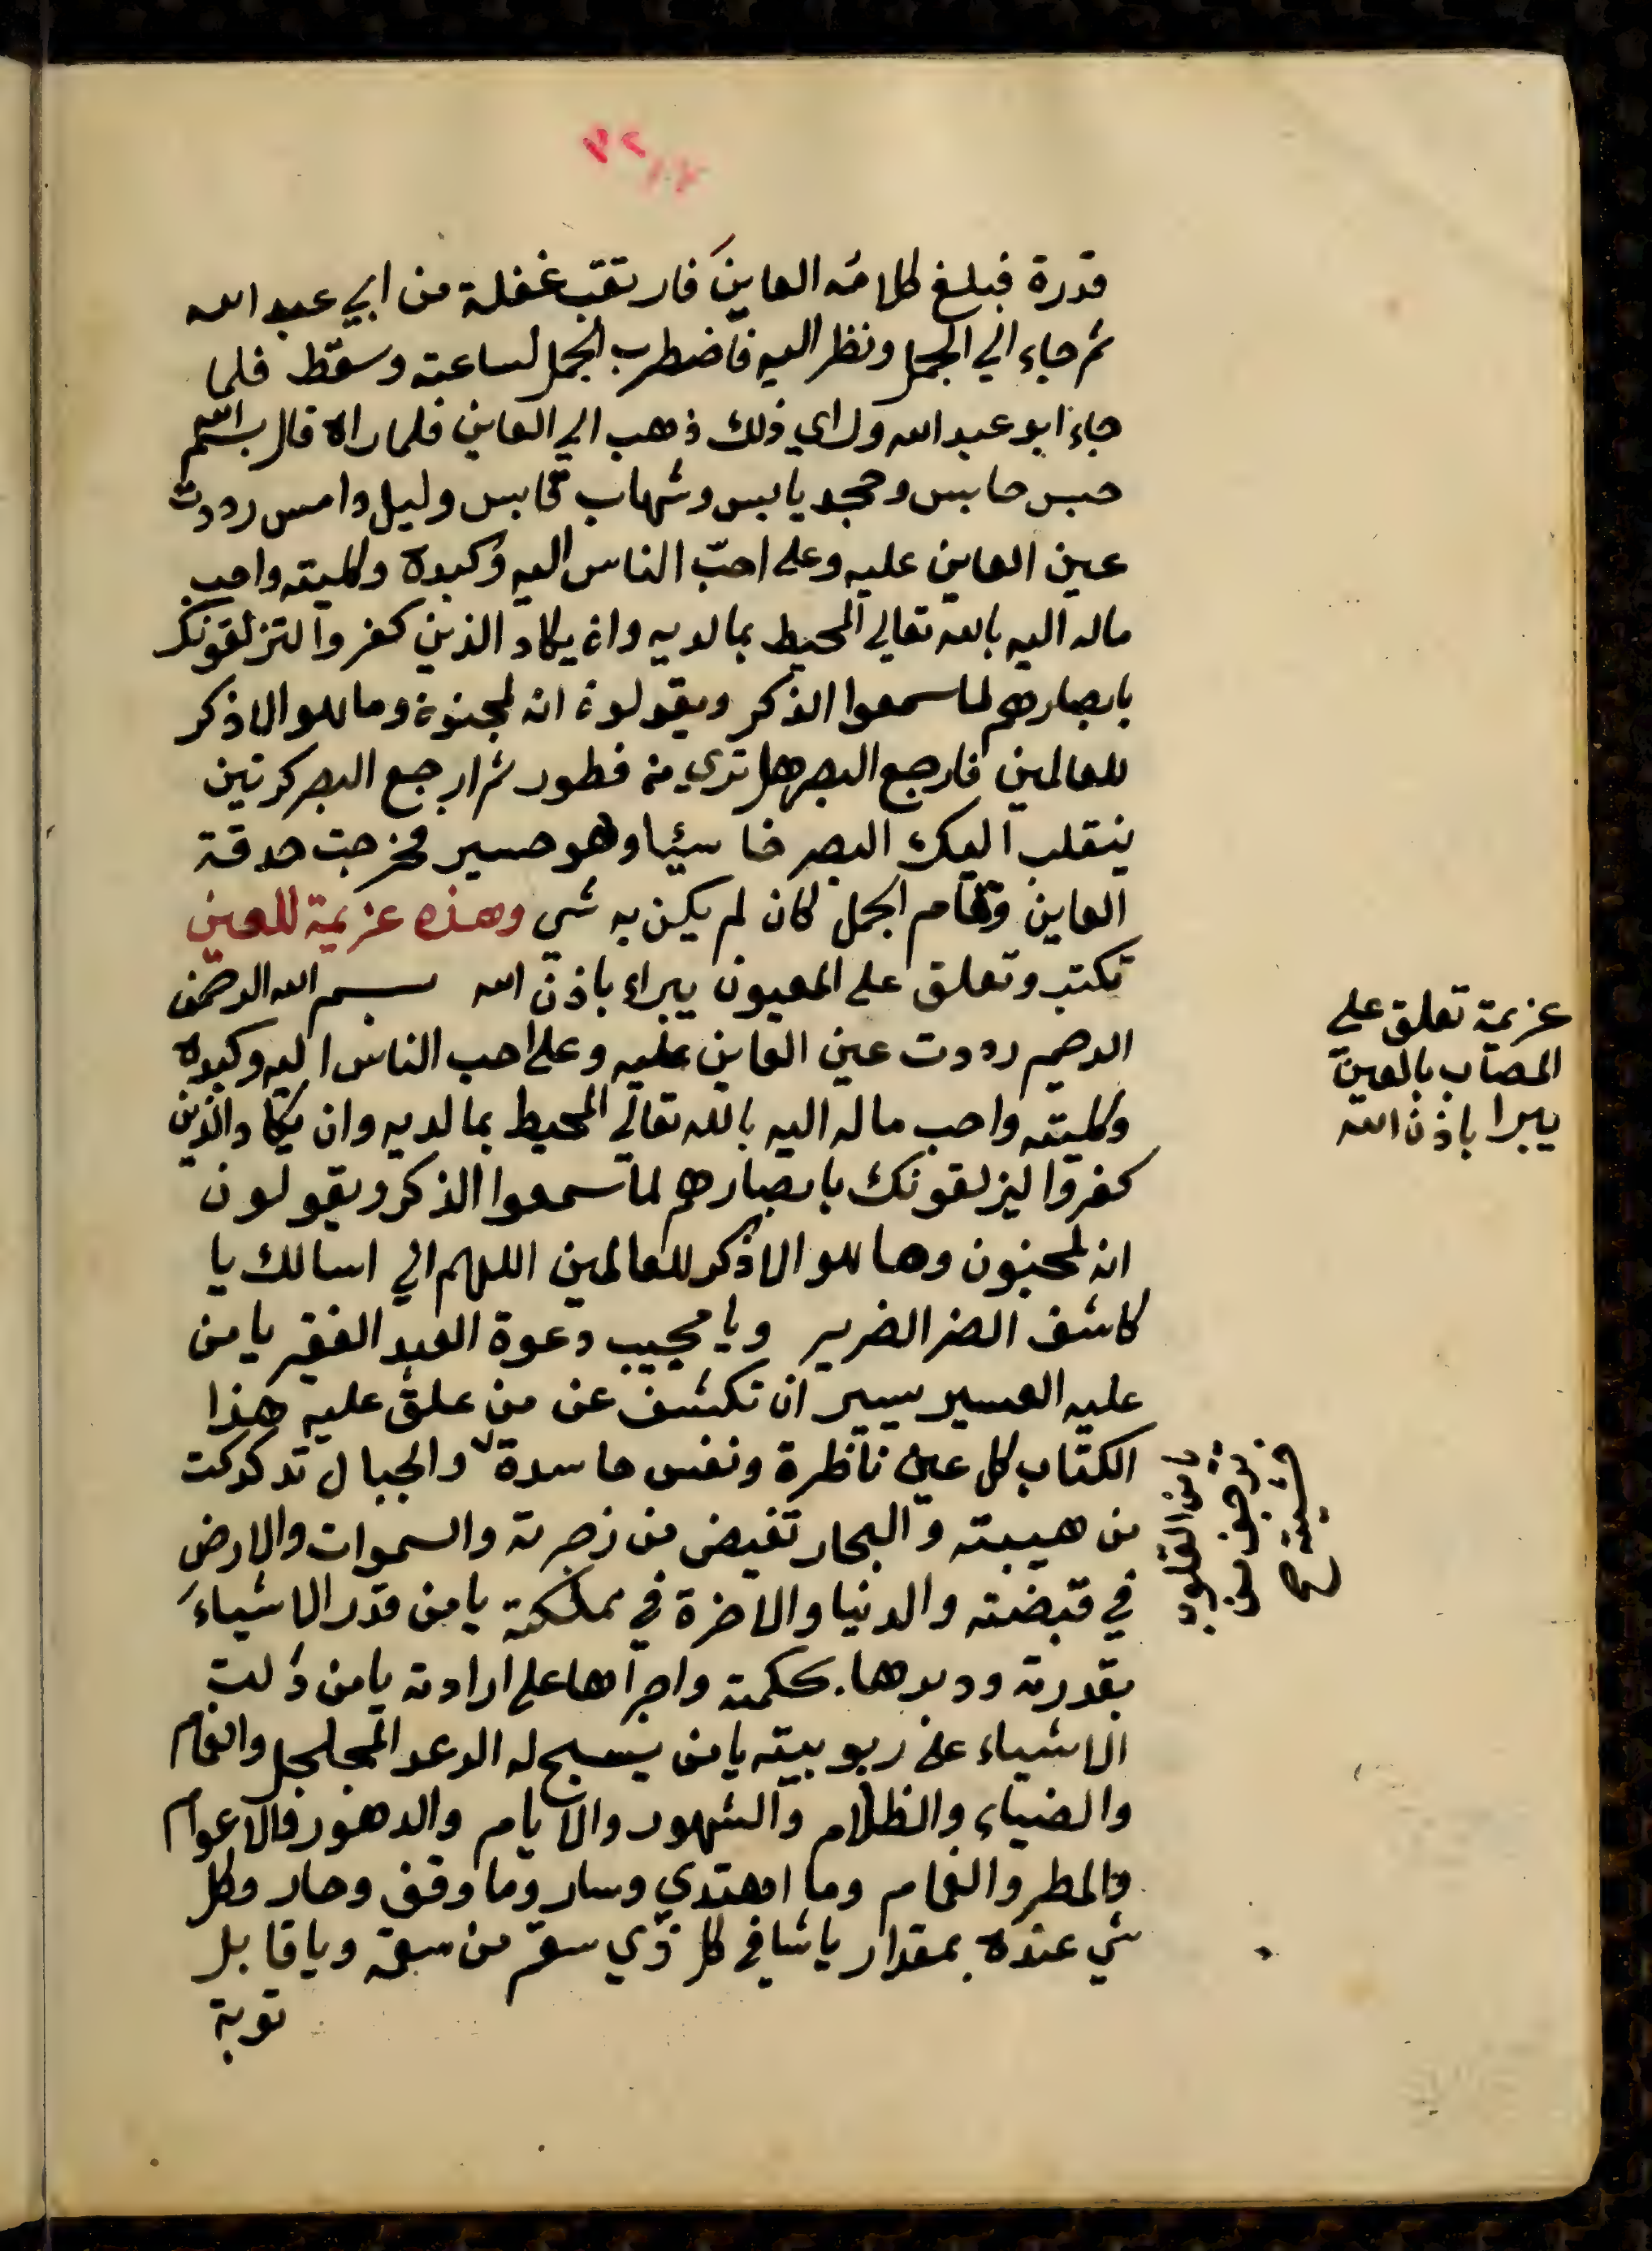 قدرة فبلغ كلامُه العاين فارتقبَ غفلة من ابي عبد الله
ثم جاء الي الجمل ونظر اليه فاضطرب الجمل لساعته وسقط فلما
جاء ابو عبد الله وراي ذلك ذهب الي العاين فلما راه قال بسم الله
حبس حابس وحجر يابس وشهاب قابس وليل دامس رددت
عين العاين عليه وعلي احبّ الناس اليه وكبده وكليته واحب
ماله اليه بالله تعالي المحيط بما لديه وان يكاد الذين كفروا ليزلقونك
بابصارهم لما سمعوا الذكر ويقولون انه لمجنون وما هو الا ذكر
للعالمين فارجع البصر هل تري من فطور ثم ارجع البصر كرتين
ينقلب اليك البصر خاسئيا وهو حسير فخرجت حدقة
العاين وقام الجمل كان لم يكن به شي وهذه عزيمة للعين
تكتب وتعلق علي المعيون يبراء باذن الله بسم الله الرحمن
الرحيم رددت عين العاين عليه وعلي احب الناس اليه وكبده
وكليته واحب ماله اليه بالله تعالي المحيط بما لديه وان يكاد الذين
كفروا ليزلقونك بابصارهم لما سمعوا الذكر ويقولون
انه لمجنون وما هو الا ذكر للعالمين اللهم اني اسالك يا
كاشف الضر الضرير ويا مجيب دعوة العبد الفقير يا من
عليه العسير يسير ان تكشف عن من علق عليه هذا
الكتاب كل عين ناظرة ونفس حاسدة والجبال تدكدكت
من هيبته والبحار تفيض من زجرته والسموات والارض
في قبضته والدنيا والاخرة في مملكته يا من قدر الاشياء
بقدرته ودبرها بحكمته واجراها علي ارادته يا من ذلت
الاشياء علي ربوبيته يا من يسبح له الرعد المجلجل والغمام
والضياء والظلام والشهور والايام والدهور والاعوام
والمطر والغمام وما اهتدي وسار وما وقف وحار وكل
شي عنده بمقدار يا شافي كل ذي سقم من سقمه ويا قابل
توبة
عزيمة تعلق علي
المصاب بالعين
يبرا باذن الله
يا من القلوب
ترجف من
خشيته صح